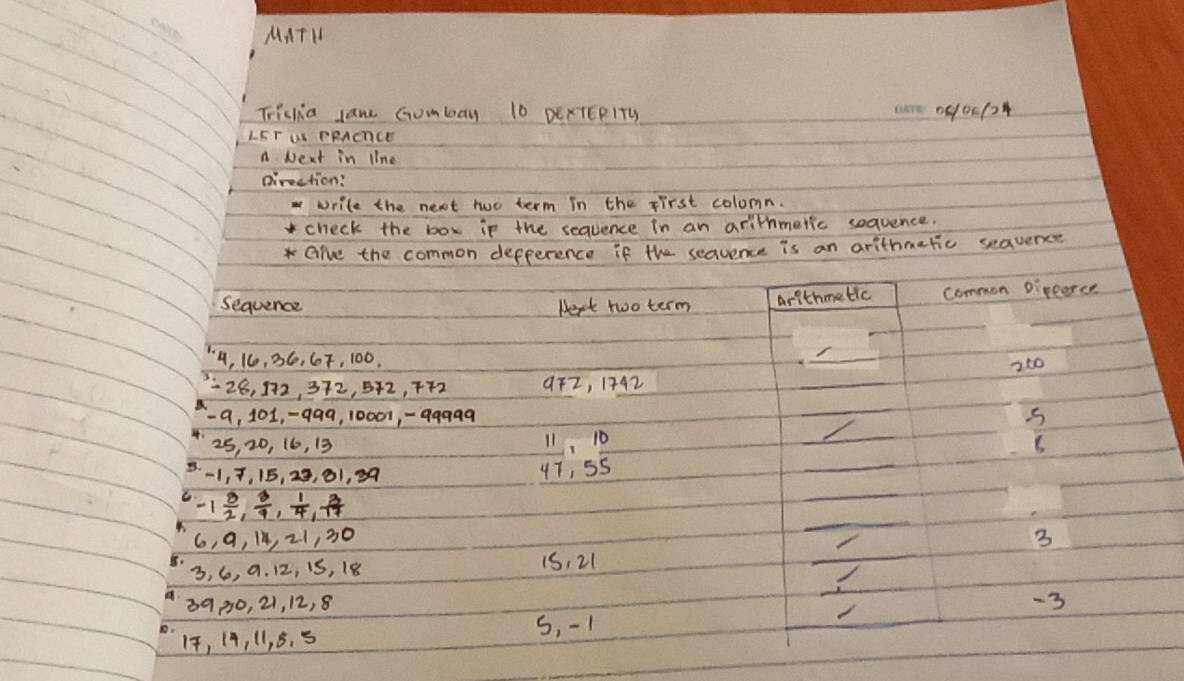 MATH
Trichia Jane Gumbay 10 DEXTERITY DATE 06/06/24
LET US PRACTICE
A Next in line
Direction:
* Write the next two term in the first colomn.
* check the box if the sequence in an arithmetic sequence.
* Give the common defference if the sequence is an arithmetic sequence
Sequence Next two term Arithmetic Common Differce
1. 4, 16, 36, 67, 100,
2. -28, 172, 372, 572, 772 972, 1742 200
3. -9, 101, -999, 10001, -99999
4. 25, 20, 16, 13 11, 10 -5
5. -1, 7, 15, 23, 31, 39 47, 55 8
6. -1 3/2, 3/4, 1/4,
7. 6, 9, 14, 21, 30
8. 3, 6, 9. 12, 15, 18 15, 21 3
9. 39, 30, 21, 12, 8
10. 17, 14, 11, 8, 5 5, -1 -3